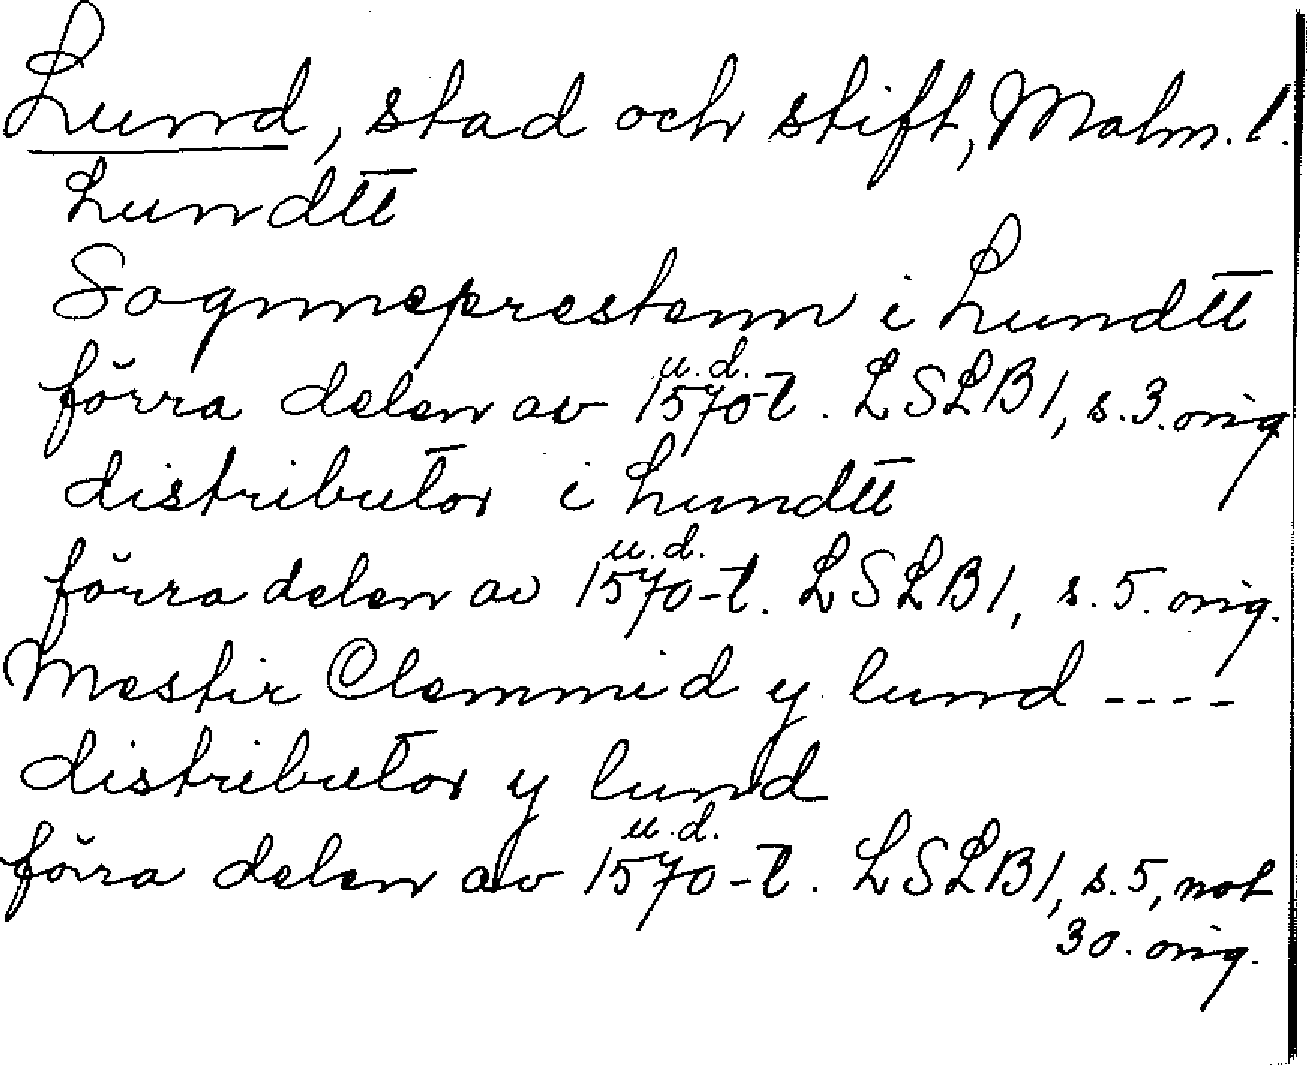 Lund, stad och stift, Malm. l.
Lundtt
Sognneprestenn i Lundtt
förra delen av 1570-t. u.d. LSLB1, s.3. orig
distributor i Lundtt
förra delen av 1570-t. u.d. LSLB1, s. 5. orig.
Mestir Clemmid y lund ----
distributor y lund
förra delen av 1570-t. u.d. LSLB1, s.5, not
30. orig.